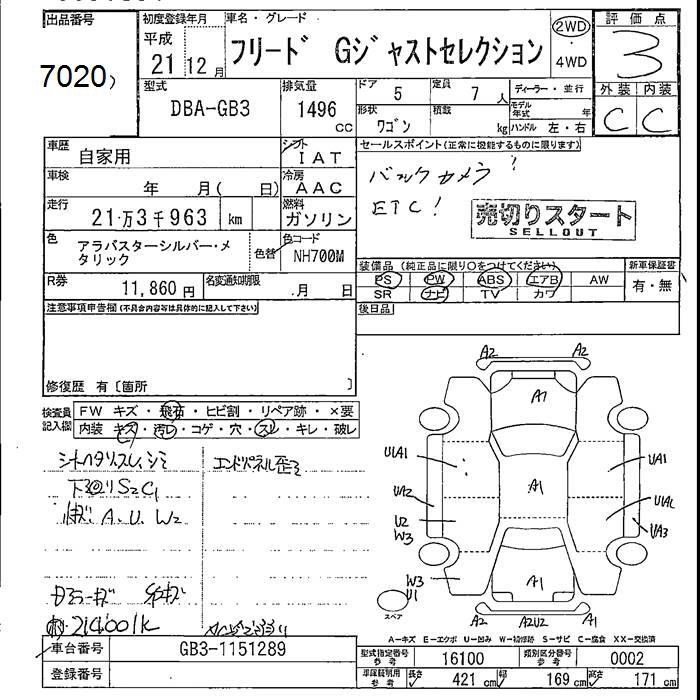 出品番号
7020
初度登録年月
平成
21 12 月
車名・グレード
フリード Gジャストセレクション
2WD
・
4WD
評価点
3
外装 内装
C C
型式
DBA-GB3
排気量
1496
CC
ドア 5
定員 7 人
形状 ワゴン
積載 kg
ディーラー・並行
モデル年式 年
ハンドル 左・右
車歴
自家用
シフト
IAT
車検
年 月( 日)
冷房
AAC
走行
21万3千963 km
燃料
ガソリン
色
アラバスターシルバー・メ
タリック
色替
色コード
NH700M
R券
11,860 円
名変通知期限
. 月 日
セールスポイント(正常に機能するものに限ります)
バックカメラ!
ETC!
売切りスタート
SELLOUT
装備品 (純正品に限り○をつけてください)
新車保証書
PS PW ABS エアB AW
SR ナビ TV カワ
有・無
後日品
注意事項申告欄 (不具合内容等は具体的に記入して下さい)
修復歴 有〔箇所 〕
検査員
記入欄
FW キズ・飛石・ヒビ割・リペア跡・×要
内装 キズ・汚レ・コゲ・穴・スレ・キレ・破レ
シートヘタリスレ、シミ
エンドパネル歪ミ
下回りS2C1
A. U. W2
214001K
A2 A2
A1
U1A1
UA1
UA2
A1
U1A1
U2
W3
UA3
W3
U1
A1
スペア
A2 A2U2 A1
A-キズ E-エクボ U-凹み W-補修跡 S-サビ C-腐食 XX-交換済
車台番号
GB3-1151289
登録番号
型式指定番号
参考
16100
類別区分番号
参考
0002
車庫証明用
参考
長さ 421 cm
幅 169 cm
高さ 171 cm